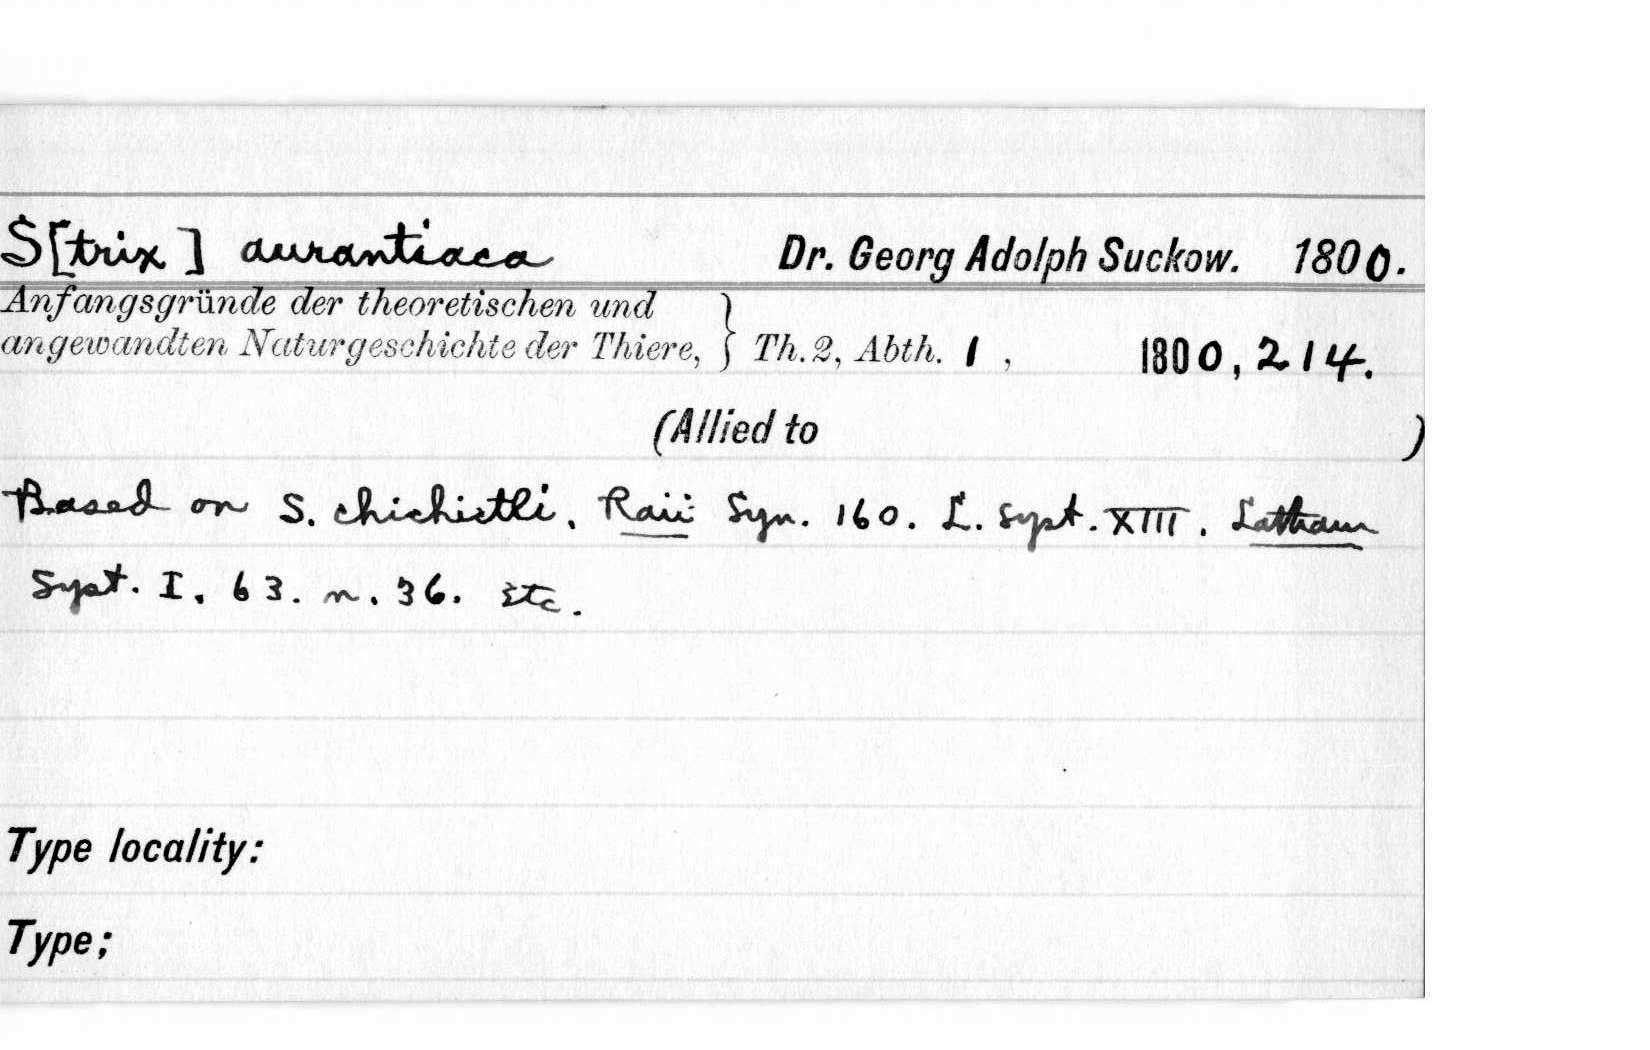 S[trix] aurantiaca Dr. Georg Adolph Suckow. 1800.
Anfangsgründe der theoretischen und
angewandten Naturgeschichte der Thiere, } Th. 2, Abth. 1, 1800, 214.
(Allied to )
Based on S. chichictli. Raii Syn. 160. L. Syst. XIII. Latham
Syst. I. 63. n. 36. Etc.
Type locality:
Type;